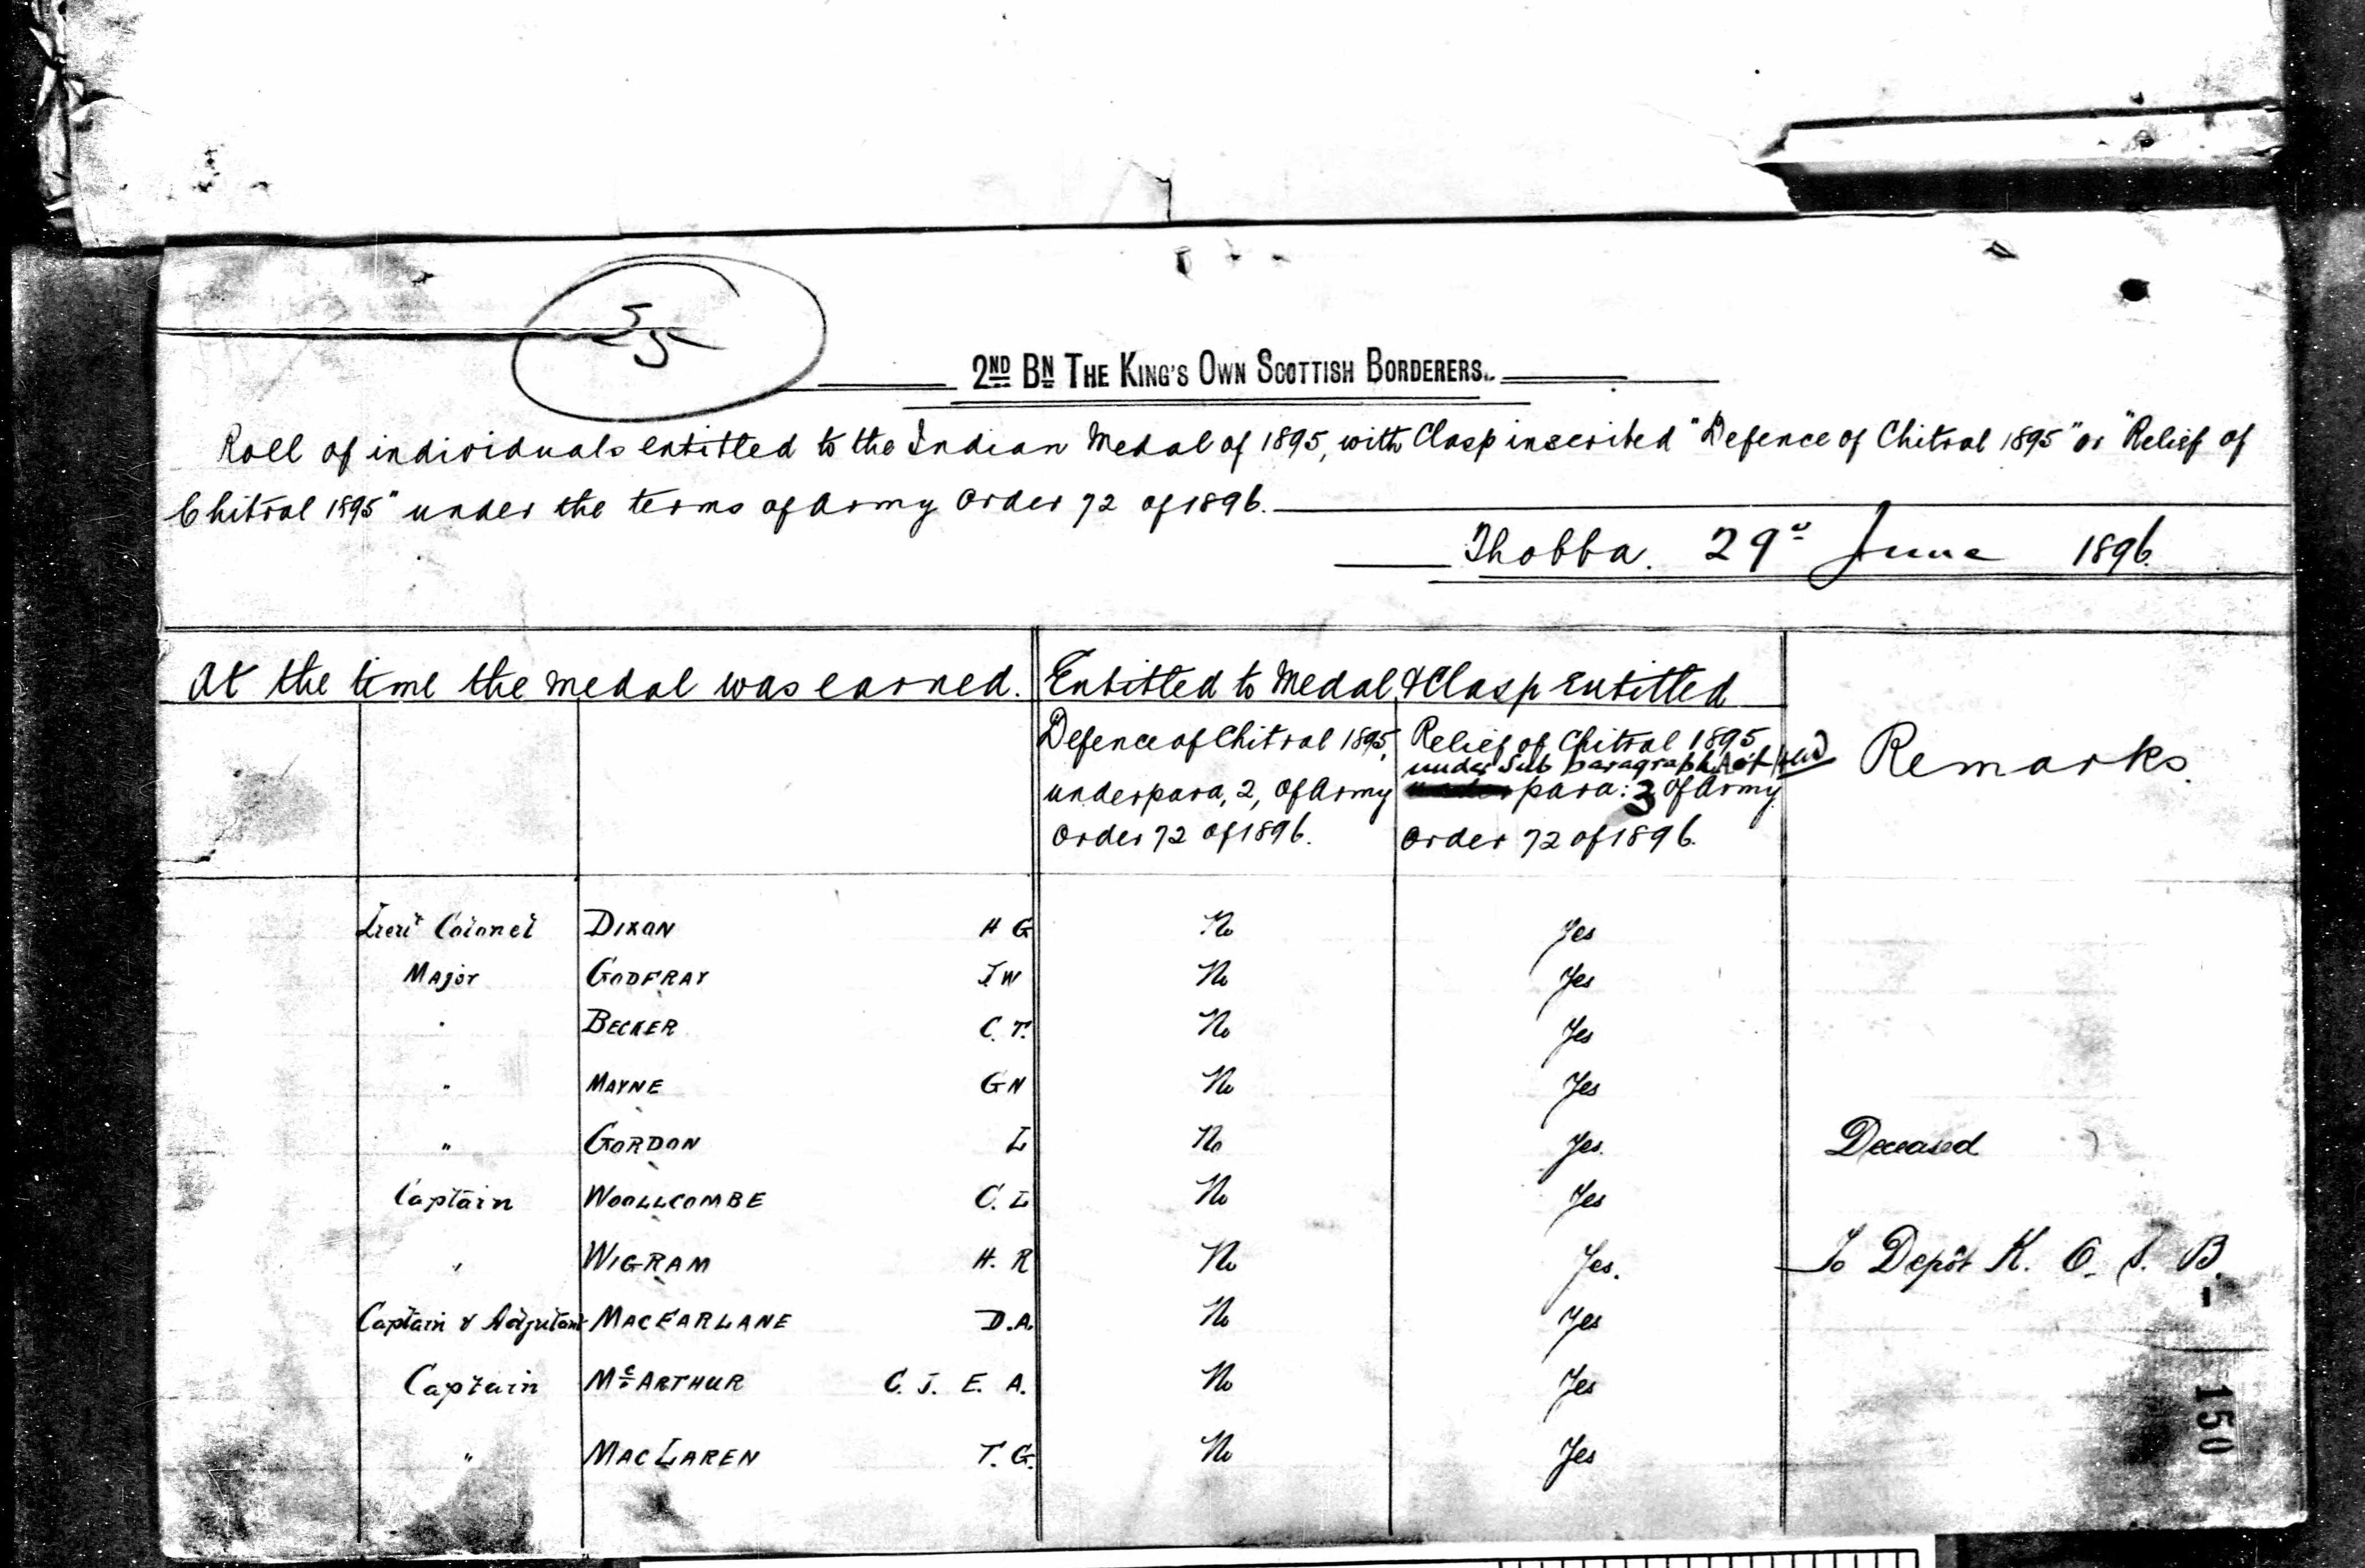 55
2ND BN THE KING'S OWN SCOTTISH BORDERERS.
Roll of individuals entitled to the Indian Medal of 1895, with Clasp inscribed "Defence of Chitral 1895" or "Relief of
Chitral 1895" under the terms of Army Order 72 of 1896.
Thobba. 29th June 1896.
At the time the medal was earned. Entitled to Medal & Clasp Entitled
Defence of Chitral 1895, under para, 2, of Army Order 72 of 1896.
Relief of Chitral 1895 under Sub paragraph A of para: 3 of Army Order 72 of 1896.
Remarks.
Lieut Colonel DIXON H G No Yes
Major GODFRAY J W No Yes
" BECKER C. T. No Yes
" MAYNE G N No Yes
" GORDON L No Yes. Deceased
Captain WOOLLCOMBE C. L No Yes
" WIGRAM H. R No Yes. To Depôt K. O. S. B.
Captain & Adjutant MACFARLANE D. A. No Yes
Captain McARTHUR C. J. E. A. No Yes
" MACLAREN T. G. No Yes
150